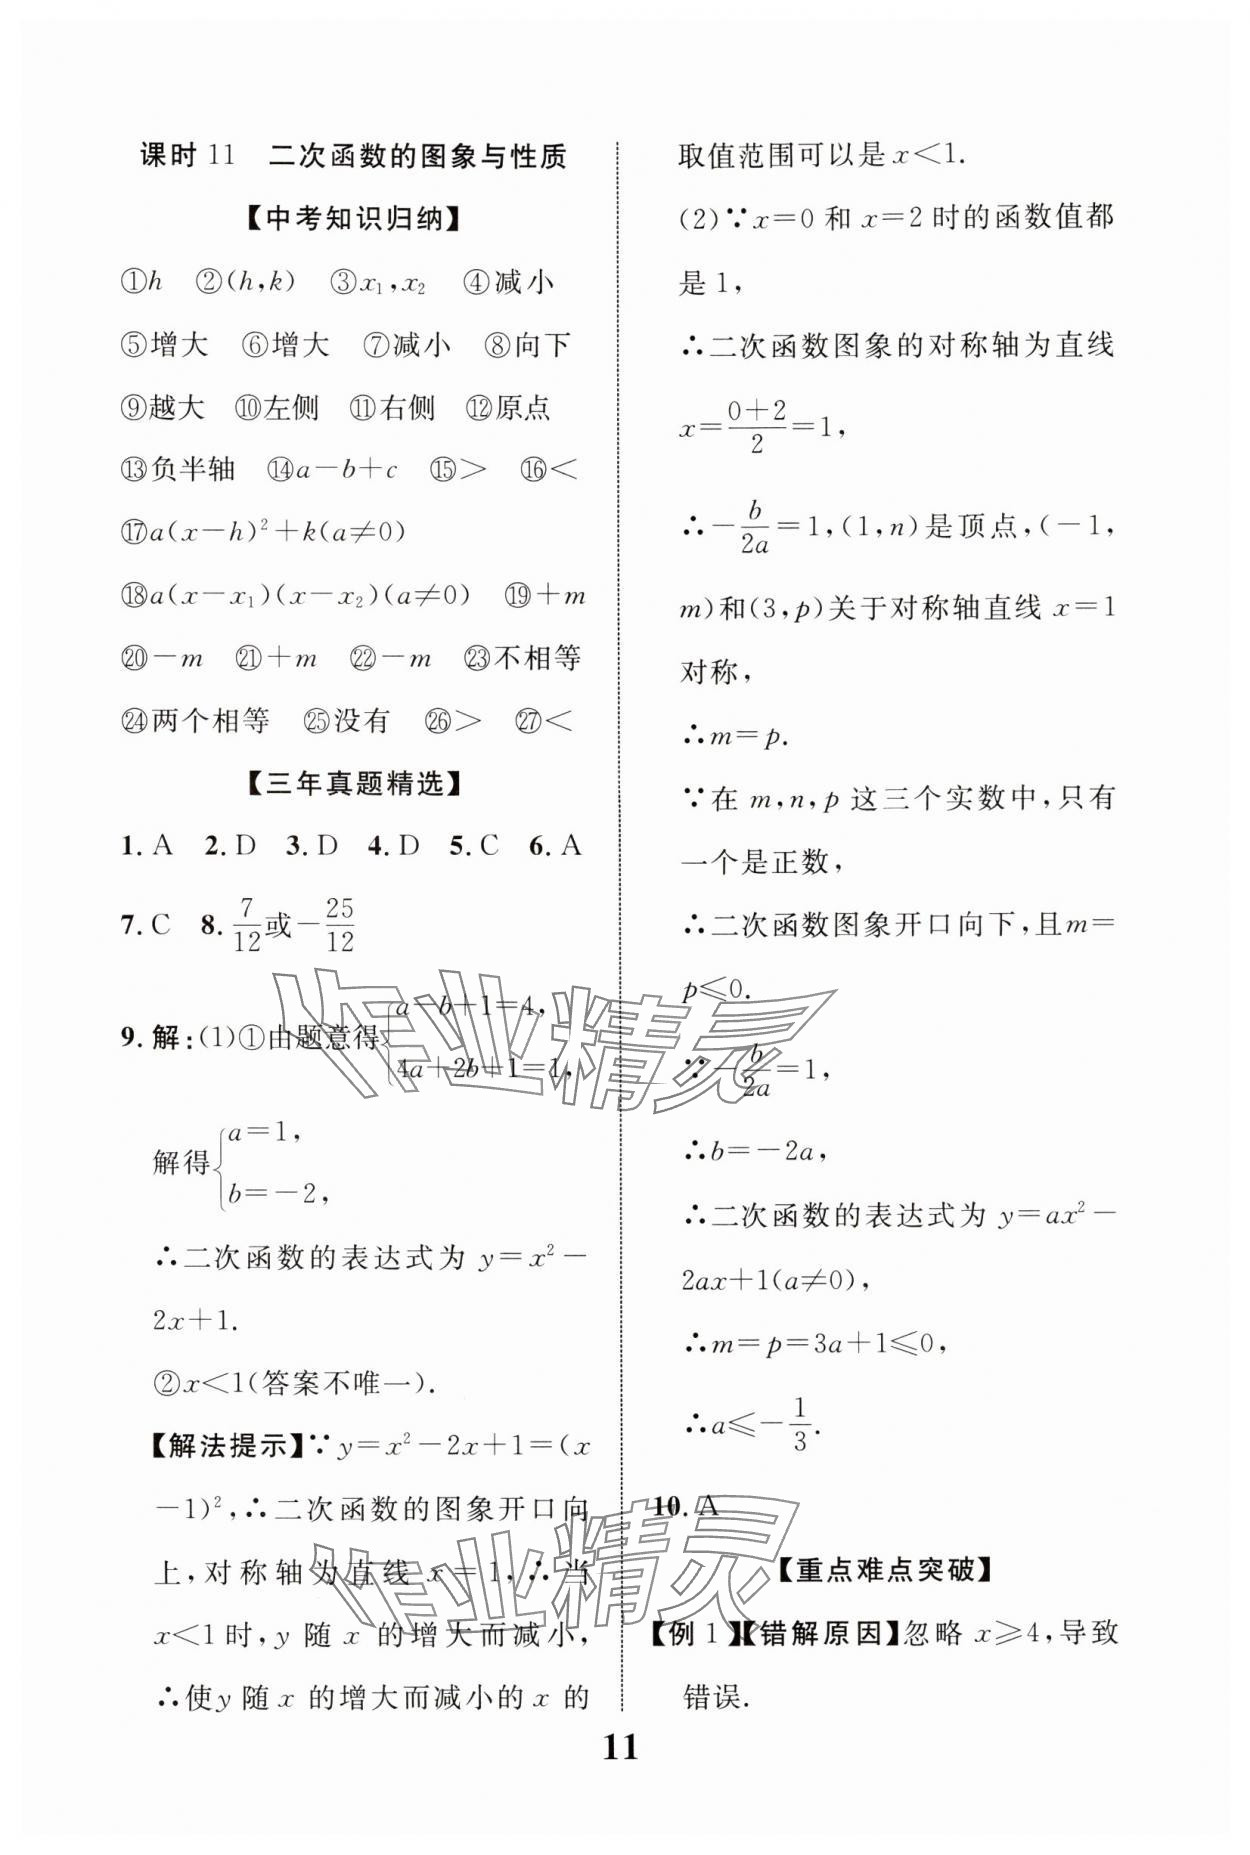 课时 11　二次函数的图象与性质
【中考知识归纳】
①h　②(h,k)　③x₁,x₂　④减小
⑤增大　⑥增大　⑦减小　⑧向下
⑨越大　⑩左侧　⑪右侧　⑫原点
⑬负半轴　⑭a－b＋c　⑮＞　⑯＜
⑰a(x－h)²＋k(a≠0)
⑱a(x－x₁)(x－x₂)(a≠0)　⑲＋m
⑳－m　㉑＋m　㉒－m　㉓不相等
㉔两个相等　㉕没有　㉖＞　㉗＜
【三年真题精选】
1. A　2. D　3. D　4. D　5. C　6. A
7. C　8. 7/12或－25/12
9. 解:(1)①由题意得{a－b＋1＝4,
4a＋2b＋1＝1,
解得{a＝1,
b＝－2,
∴二次函数的表达式为 y＝x²－
2x＋1.
②x＜1(答案不唯一).
【解法提示】∵y＝x²－2x＋1＝(x
－1)²,∴二次函数的图象开口向
上,对称轴为直线 x＝1,∴当
x＜1时,y 随 x 的增大而减小,
∴使y 随 x 的增大而减小的 x 的
取值范围可以是 x＜1.
(2)∵x＝0 和 x＝2 时的函数值都
是 1,
∴二次函数图象的对称轴为直线
x＝(0＋2)/2＝1,
∴－b/2a＝1,(1,n)是顶点,(－1,
m)和(3,p)关于对称轴直线 x＝1
对称,
∴m＝p.
∵在 m,n,p 这三个实数中,只有
一个是正数,
∴二次函数图象开口向下,且m＝
p≤0.
∵－b/2a＝1,
∴b＝－2a,
∴二次函数的表达式为 y＝ax²－
2ax＋1(a≠0),
∴m＝p＝3a＋1≤0,
∴a≤－1/3.
10. A
【重点难点突破】
【例 1】【错解原因】忽略 x≥4,导致
错误.
11
作业精灵
作业精灵